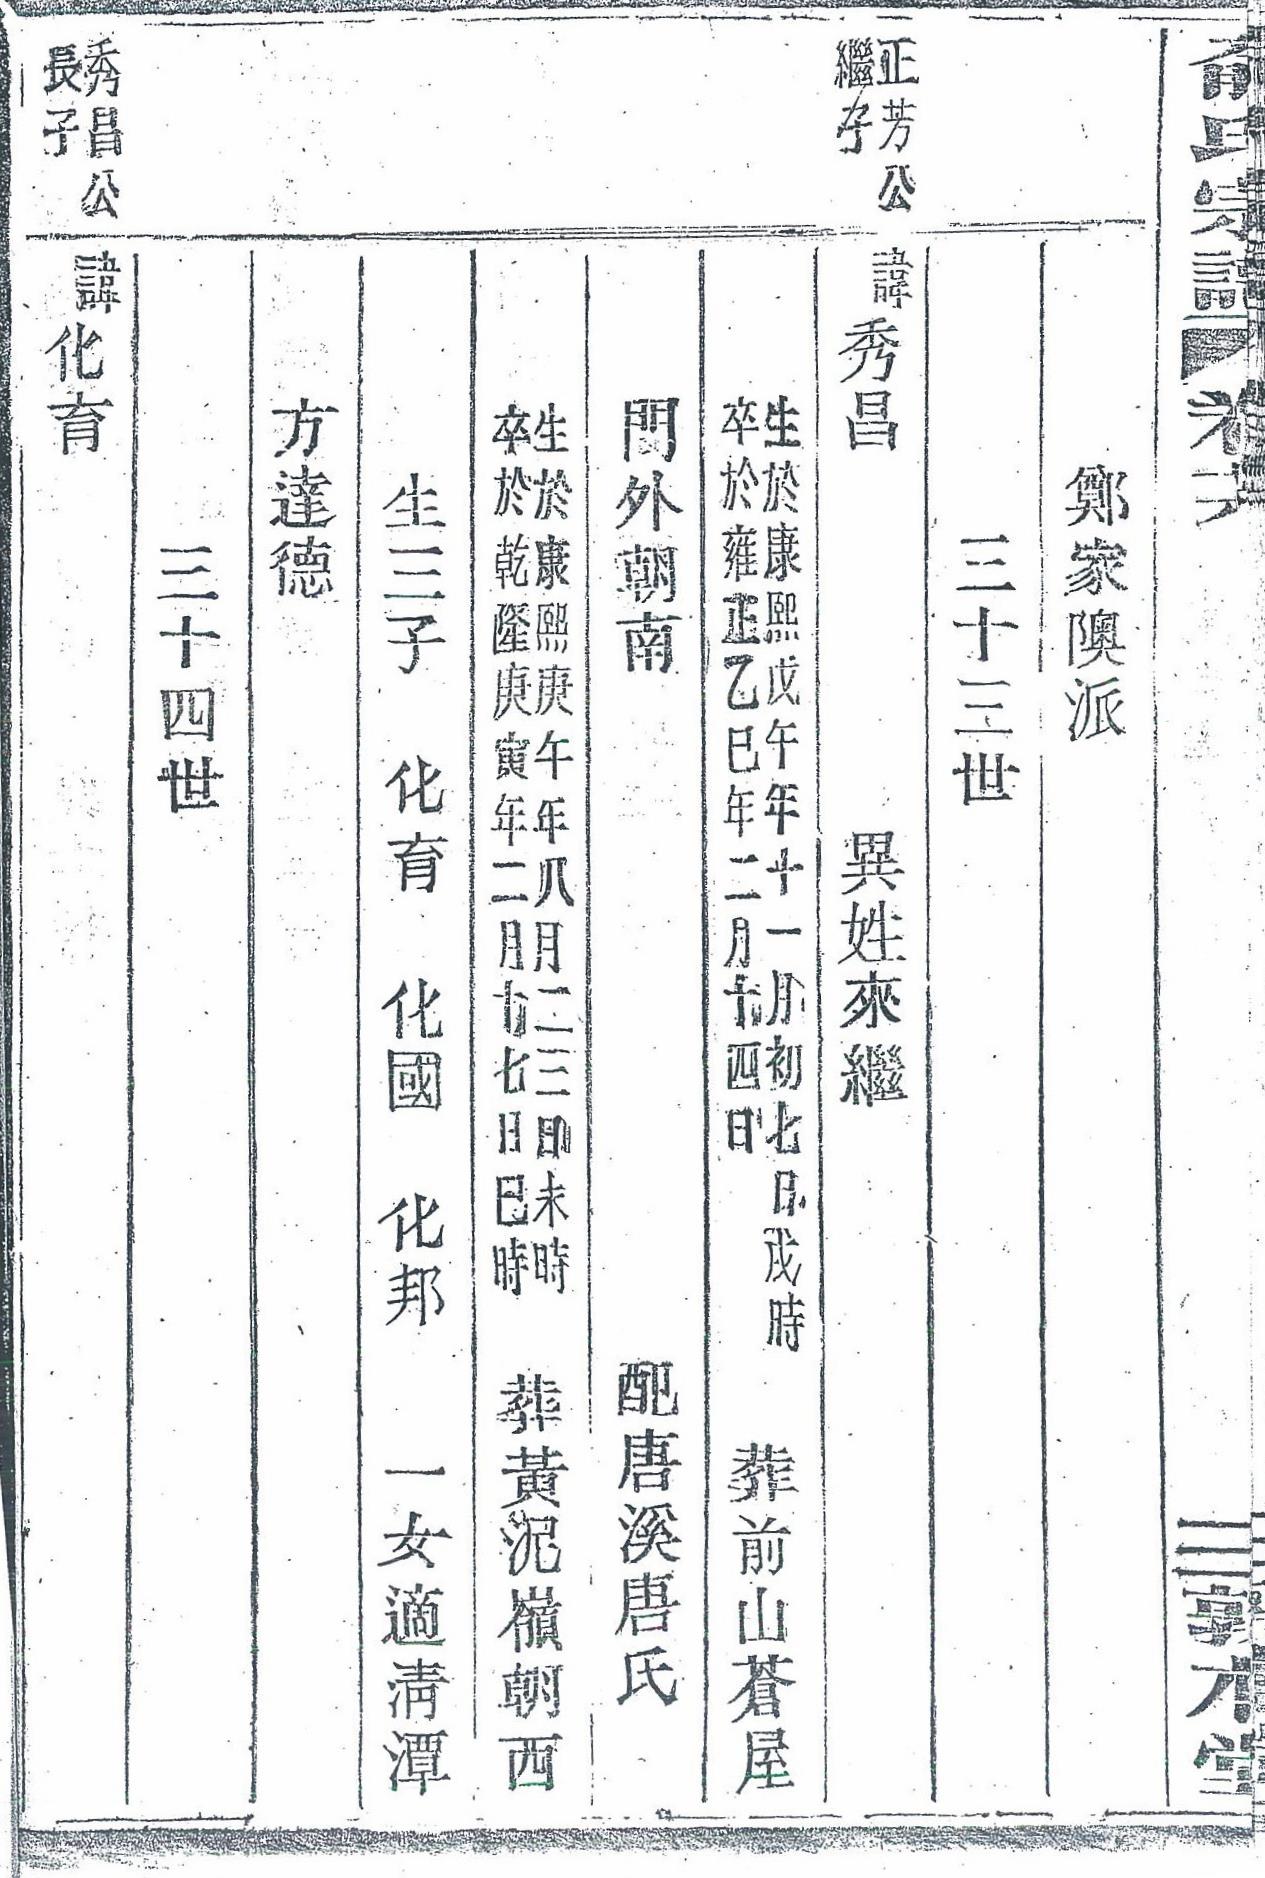 氏宗譜 卷六 三 敦本堂
鄭家隩派
三十三世
正芳公
繼子
諱秀昌 異姓來繼
生於康熙戊午年十一月初七日戌時
卒於雍正乙巳年二月十四日
葬前山蒼屋
門外朝南 配唐溪唐氏
生於康熙庚午年八月二三日未時
卒於乾隆庚寅年二月十七日巳時
葬黃泥嶺朝西
生三子 化育 化國 化邦 一女適清潭
方達德
三十四世
秀昌公
長子
諱化育